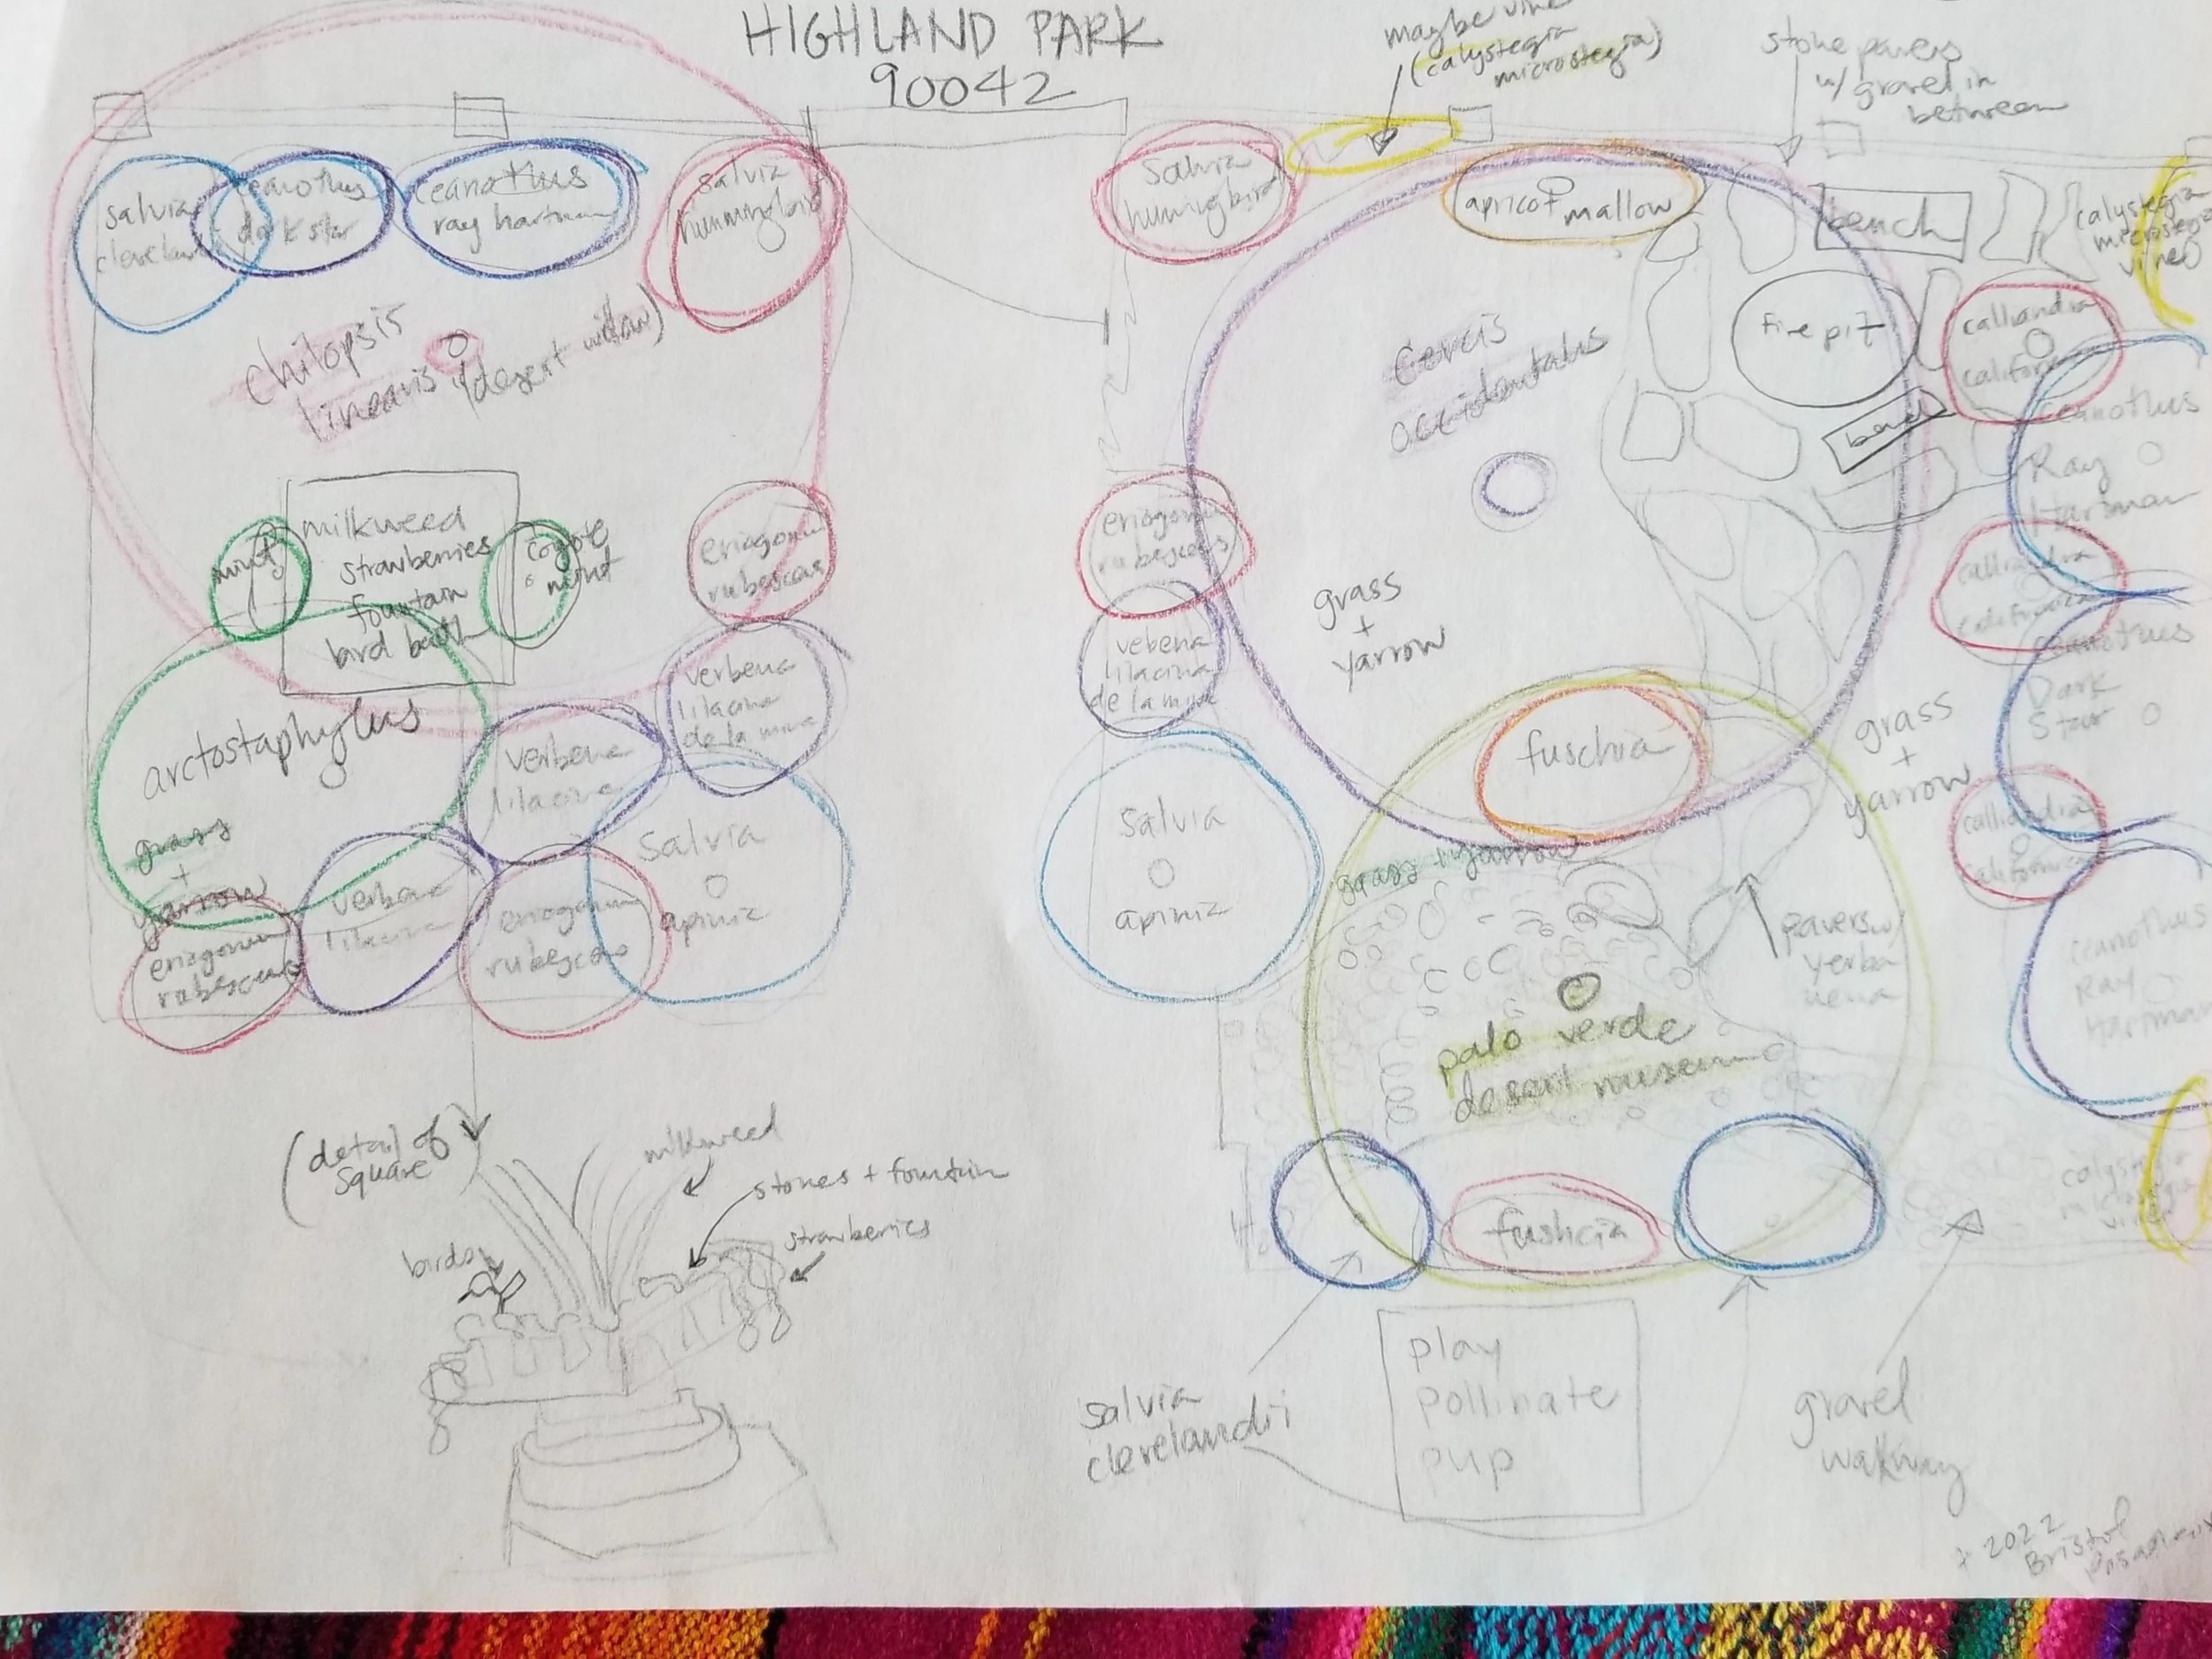 HIGHLAND PARK
90042
maybe vine
(calystegia
microstegia)
stone pavers
w/ gravel in
between
salvia
cleveland
ceanothus
dark star
ceanothus
ray hartman
salvia
hummingbird
chilopsis
linearis (desert willow)
mint
milkweed
strawberries
fountain
bird bath
coyote
mint
eriogonum
rubescas
arctostaphylus
grass
+
yarrow
verbena
lilacina
de la mina
verbena
lilacina
verbena
lilacina
eriogonum
rubescens
eriogonum
rubescens
salvia
apiniz
(detail of
square
milkweed
stones + fountain
strawberries
birds
Salvia
humingbird
apricot mallow
bench
calystegia
microstegia
vine
fire pit
calliandra
californ
bench
cercis
occidentalus
ceanothus
Ray
Hartman
eriogonum
rubescens
calliandra
californica
grass
+
yarrow
vebena
lilacina
de la mina
ceanothus
Dark
Star
fuschia
grass
+
yarrow
calliandia
californica
salvia
apiniz
grass + yarrow
pavers w/
yerba
palo verde
desert museum
ceanothus
Ray
Hartman
calystegia
microstegia
vine
fushcia
salvia
clevelandii
play
pollinate
pup
gravel
walkway
2022
Bristol